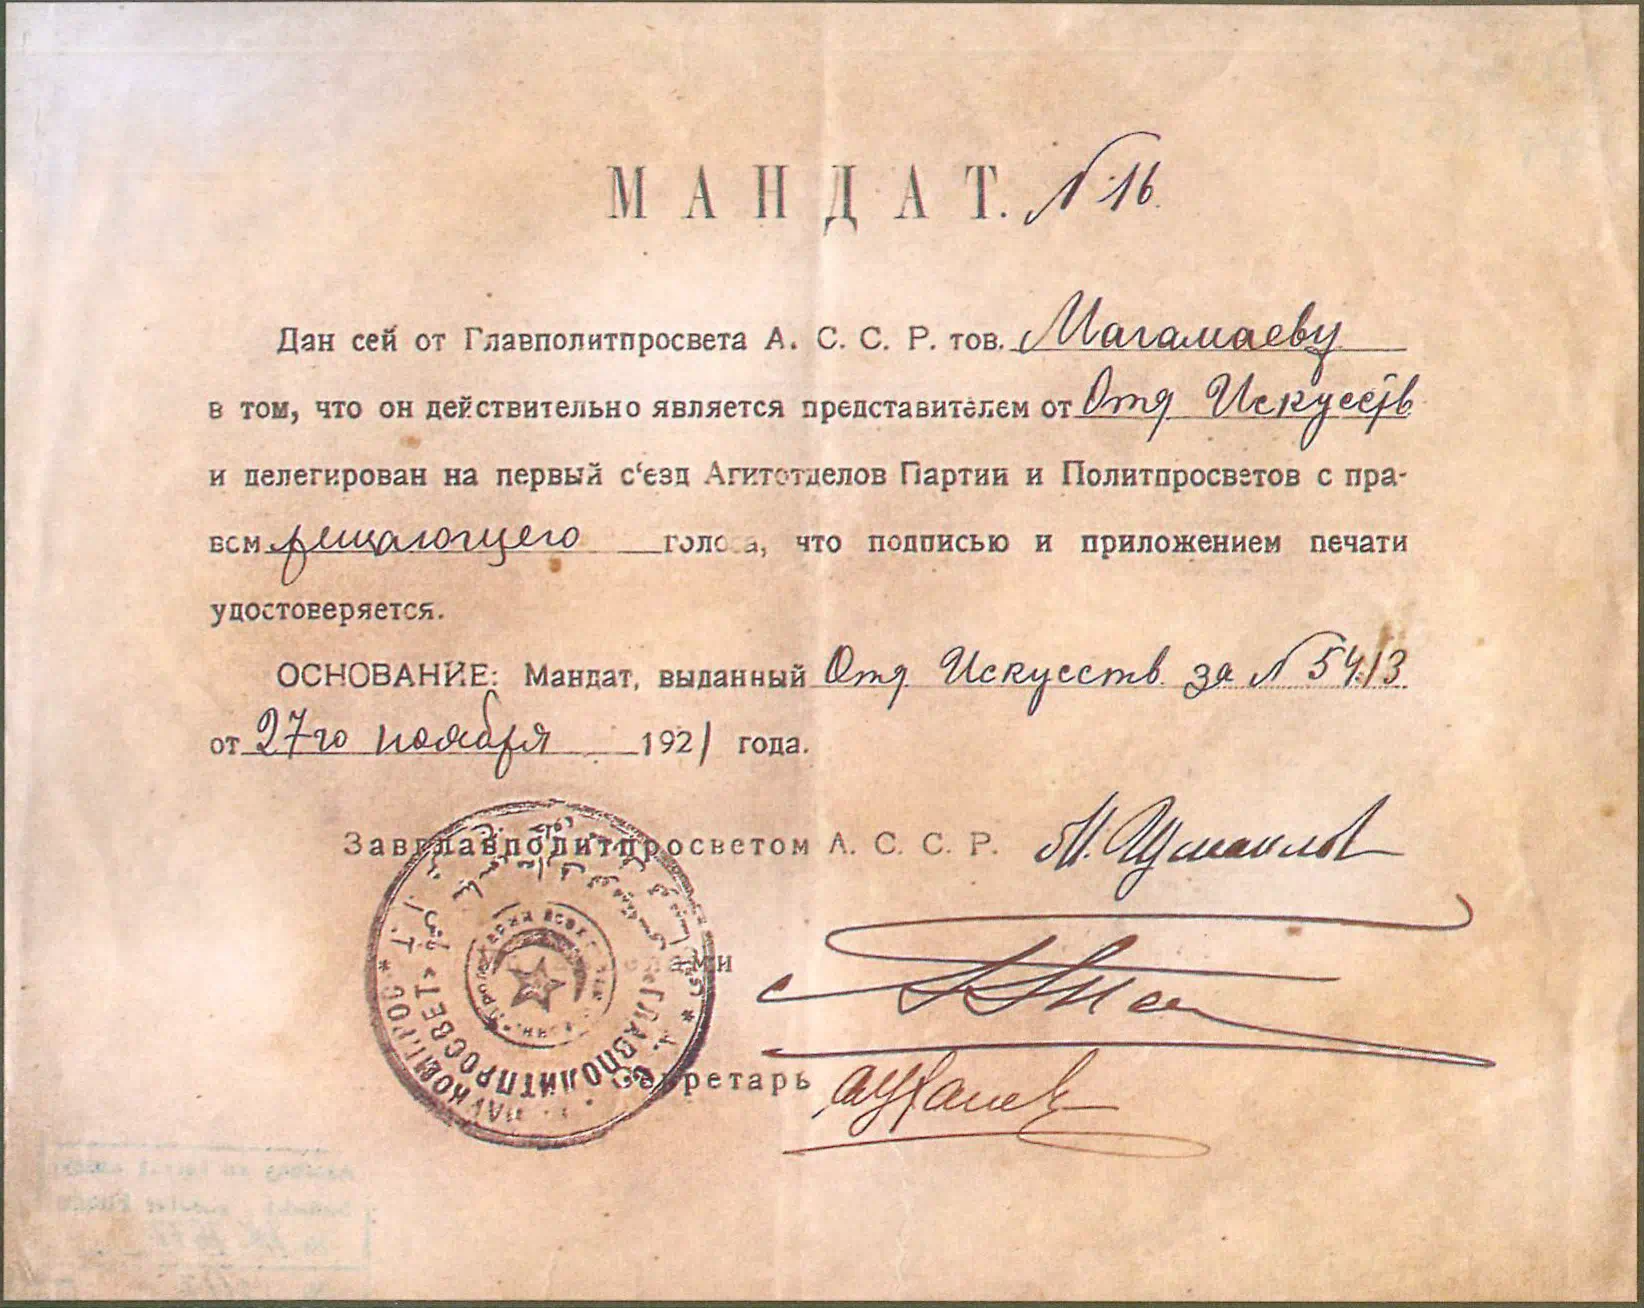 МАНДАТ. № 16.
Дан сей от Главполитпросвета А. С. С. Р. тов. Магамаеву
в том, что он действительно является представителем от Отд Искусств
и делегирован на первый с‘езд Агитотделов Партии и Политпросветов с пра-
вом решающего голоса, что подписью и приложением печати
удостоверяется.
ОСНОВАНИЕ: Мандат, выданный Отд Искусств за № 5413
от 27го ноября 1921 года.
Завглавполитпросветом А. С. С. Р.
Секретарь
ГЛАВПОЛИТПРОСВЕТ